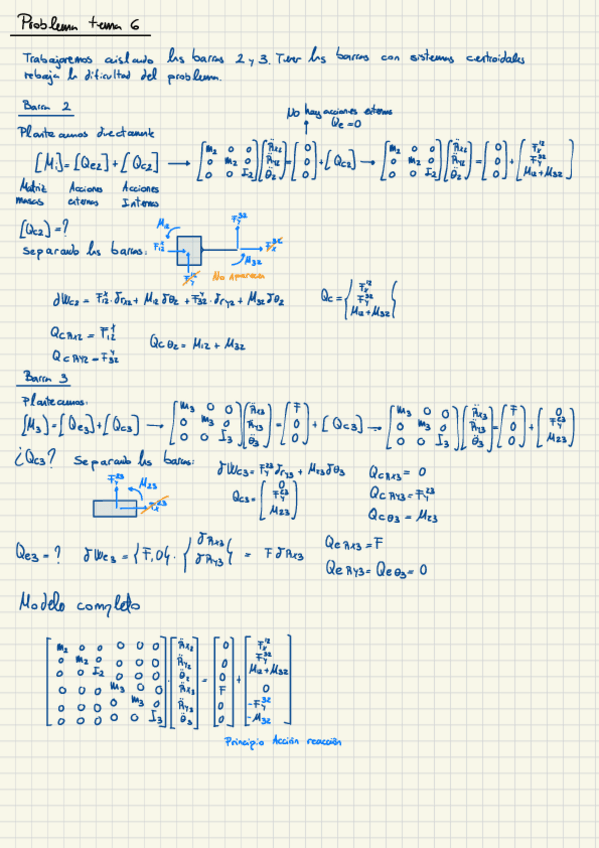 Problema tema 6
Trabajaremos aislando las barras 2 y 3. Tener las barras con sistemas centroidales
rebaja la dificultad del problema.
Barra 2
No hay acciones externas
Qe=0
Planteamos directamente
[Mi]=[Qe2]+[Qc2] → (m2 0 0; 0 m2 0; 0 0 I2)(R̈x2; R̈y2; θ̈2) = (0; 0; 0)+(Qc2) → (m2 0 0; 0 m2 0; 0 0 I2)(R̈x2; R̈y2; θ̈2) = (0; 0; 0)+(Fx^12; Fy^32; M12+M32)
Matriz Acciones Acciones
masas externas Internas
[Qc2]=?
Separando las barras: M12 F12^x Fy^12 Fy^32 Fx^32 M32
No Aparece
δWc2 = F12^x·δrx2 + M12 δθ2 + F32^y·δry2 + M32 δθ2 Qc = {Fx^12; Fy^32; M12+M32}
QcRx2 = F12^x
QcRy2 = F32^y Qcθ2 = M12 + M32
Barra 3
Planteamos:
[M3]=[Qe3]+[Qc3] → (m3 0 0; 0 m3 0; 0 0 I3)(R̈x3; R̈y3; θ̈3) = (F; 0; 0)+[Qc3] → (m3 0 0; 0 m3 0; 0 0 I3)(R̈x3; R̈y3; θ̈3) = (F; 0; 0)+(0; Fy^23; M23)
¿Qc3? Separando las barras: δWc3 = Fy^23 δry3 + M23 δθ3 QcRx3 = 0
Fy^23 M23 Fx^23 Qc3 = (0; Fy^23; M23) QcRy3 = Fy^23
Qcθ3 = M23
Qe3 = ? δWe3 = {F,0}·{δRx3; δRy3} = F δRx3 QeRx3 = F
QeRy3 = Qeθ3 = 0
Modelo completo
[m2 0 0 0 0 0; 0 m2 0 0 0 0; 0 0 I2 0 0 0; 0 0 0 m3 0 0; 0 0 0 0 m3 0; 0 0 0 0 0 I3]·[R̈x2; R̈y2; θ̈2; R̈x3; R̈y3; θ̈3] = [0; 0; 0; F; 0; 0] + [Fx^12; Fy^32; M12+M32; 0; -Fy^32; -M32]
Principio Acción reacción